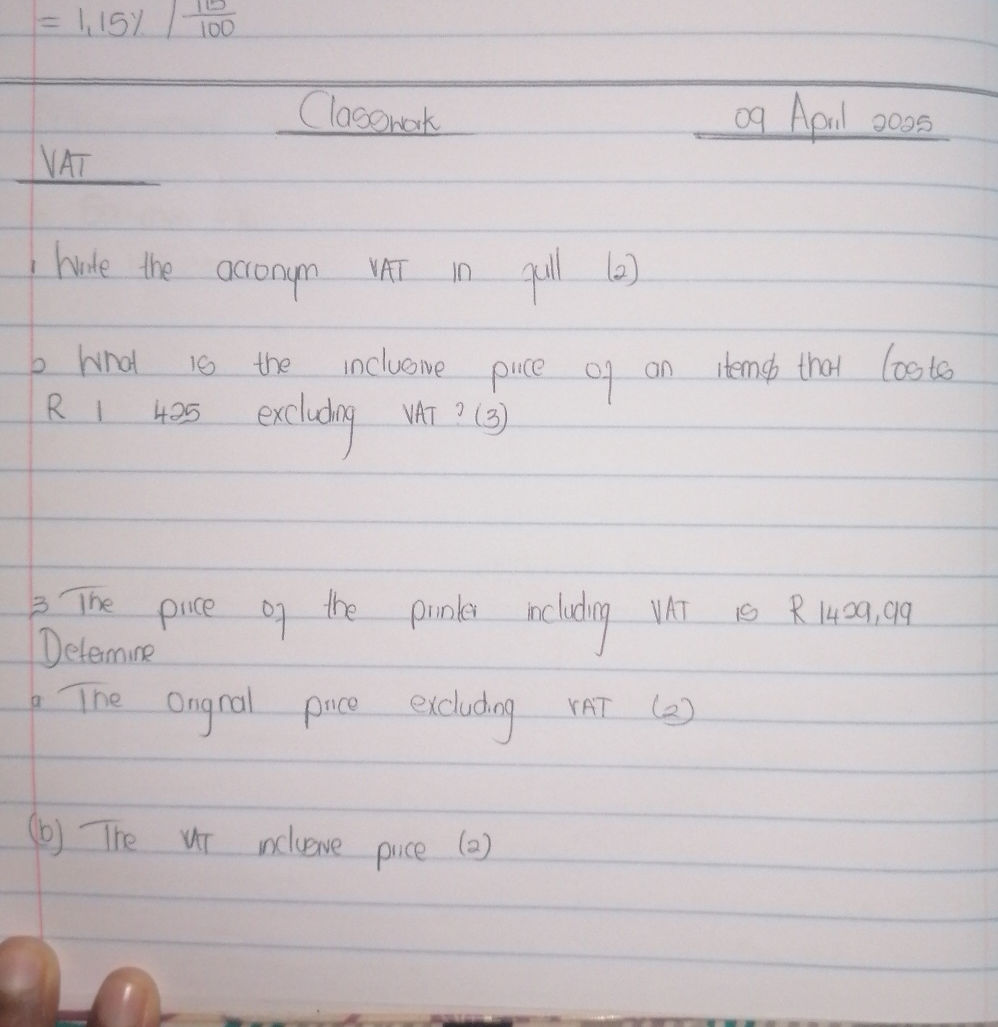 = 1,15% / 115/100
Classwork 09 April 2025
VAT
1 Write the acronym VAT in full (2)
2 What is the inclusive price of an items that costs
R 1 425 excluding VAT ? (3)
3 The price of the printer including VAT is R 1429,99
Determine
a The orignal price excluding VAT (2)
(b) The VAT inclusive price (2)